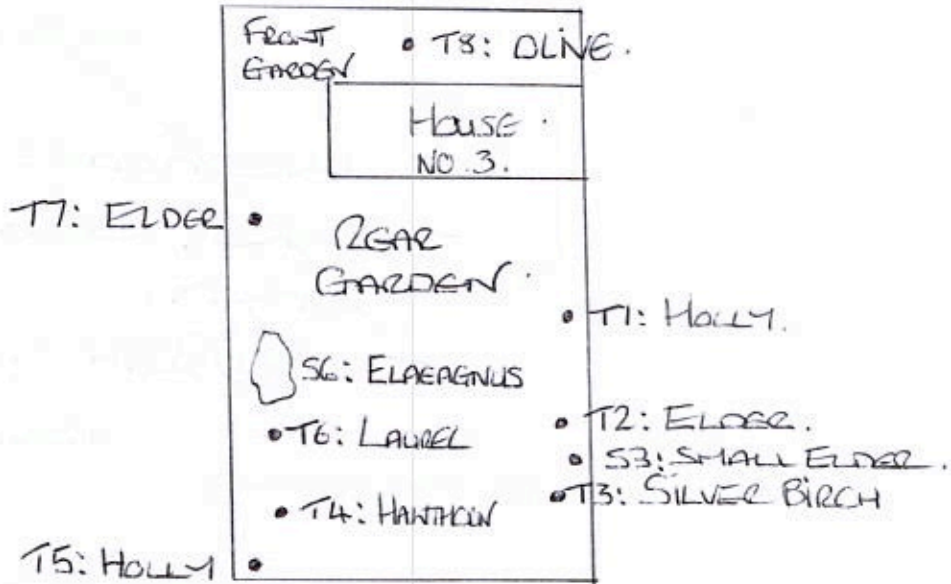 FRONT
GARDEN
T8: OLIVE.
HOUSE
NO.3.
T7: ELDER
REAR
GARDEN
T1: HOLLY.
S6: ELAEAGNUS
T2: ELDER.
T6: LAUREL
S3: SMALL ELDER.
T3: SILVER BIRCH
T4: HAWTHORN
T5: HOLLY